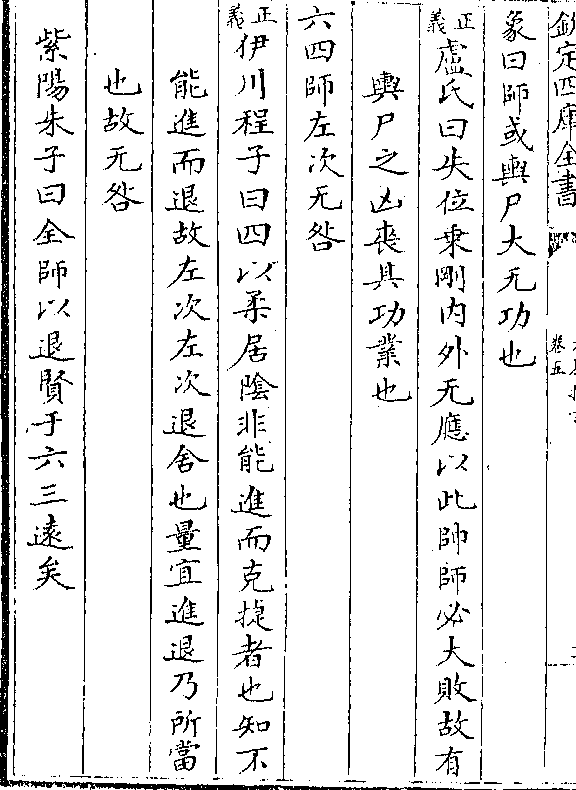 欽定四庫全書
卷五
象曰師或輿尸大无功也
正義盧氏曰失位乘剛内外无應以此帥師必大敗故有
輿尸之凶喪其功業也
六四師左次无咎
正義伊川程子曰四以柔居陰非能進而克捷者也知不
能進而退故左次左次退舍也量宜進退乃所當
也故无咎
紫陽朱子曰全師以退賢于六三遠矣